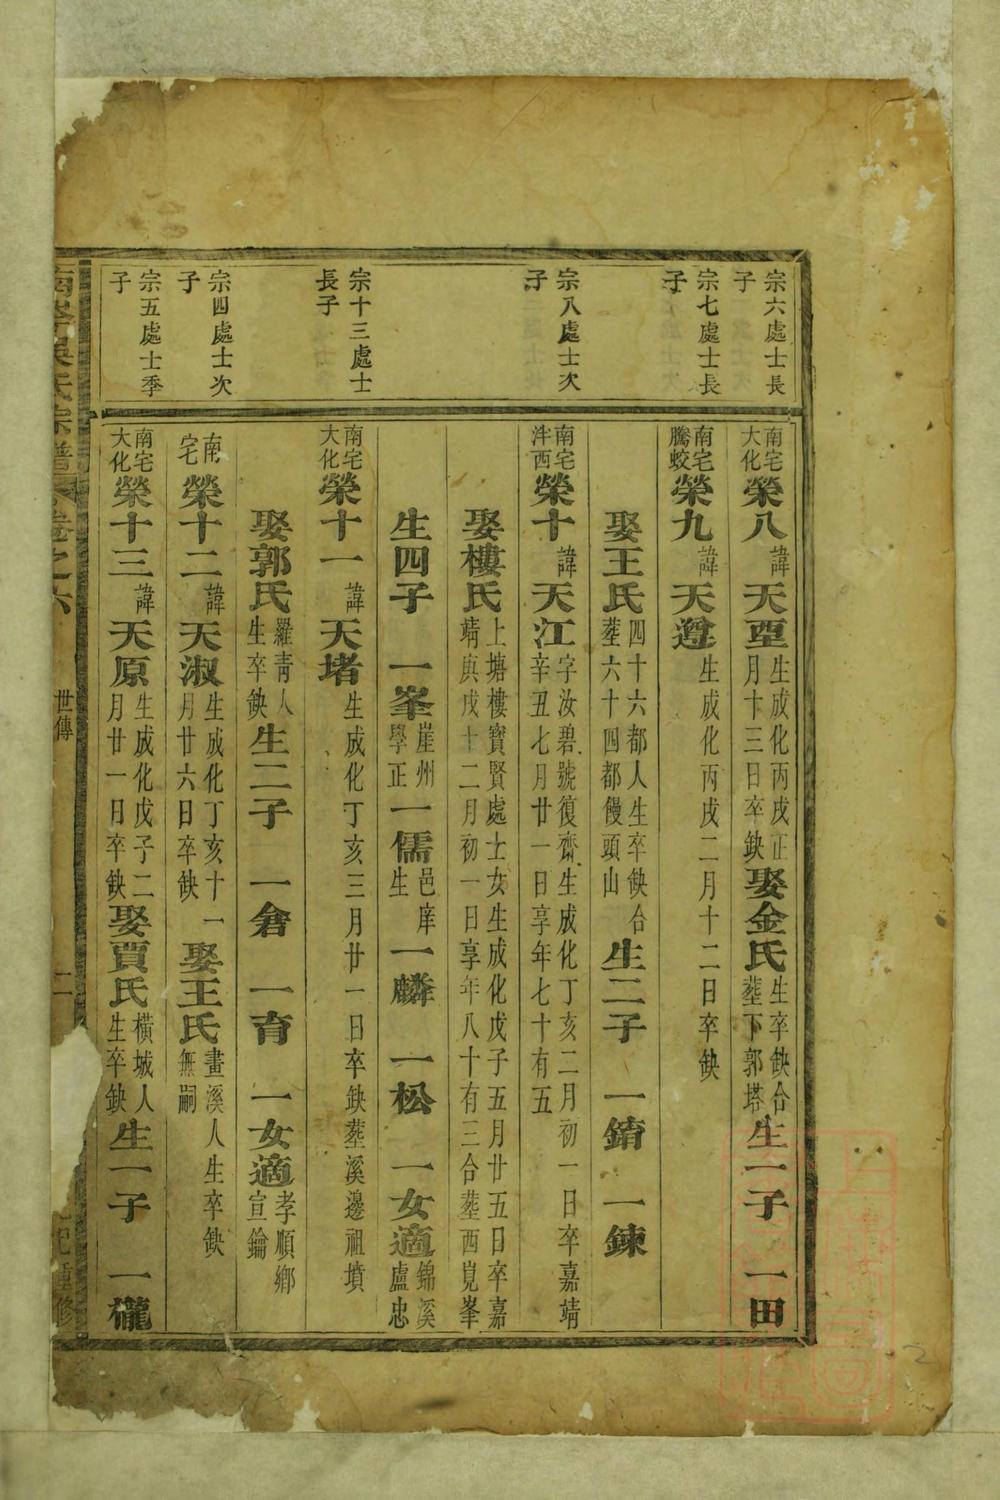 宗六處士長子
宗七處士長子
宗八處士次子
宗十三處士長子
宗四處士次子
宗五處士季子
南宅大化榮八諱天垔生成化丙戌正月十三日卒缺娶金氏生卒缺合葬下郭塔生一子 一田
南宅騰蛟榮九諱天遵生成化丙戌二月十二日卒缺
娶王氏四十六都人生卒缺合葬六十四都饅頭山生二子 一錥 一鍊
南宅泮西榮十諱天江字汝碧號復齋生成化丁亥二月初一日卒嘉靖辛丑七月廿一日享年七十有五
娶樓氏上塘樓寶賢處士女生成化戊子五月廿五日卒嘉靖庚戌十二月初一日享年八十有三合葬西峴峯
生四子 一峯崖州學正一儒邑庠生一麟 一松 一女適錦溪盧忠
南宅大化榮十一諱天堵生成化丁亥三月廿一日卒缺葬溪邊祖墳
娶郭氏羅青人生卒缺生二子 一倉 一育 一女適孝順鄉宣鑰
南宅榮十二諱天淑生成化丁亥十一月廿六日卒缺娶王氏畫溪人生卒缺無嗣
南宅大化榮十三諱天原生成化戊子二月廿一日卒缺娶賈氏橫城人生卒缺生一子 一櫳
吳氏宗譜 卷之六 世傳 二 重修